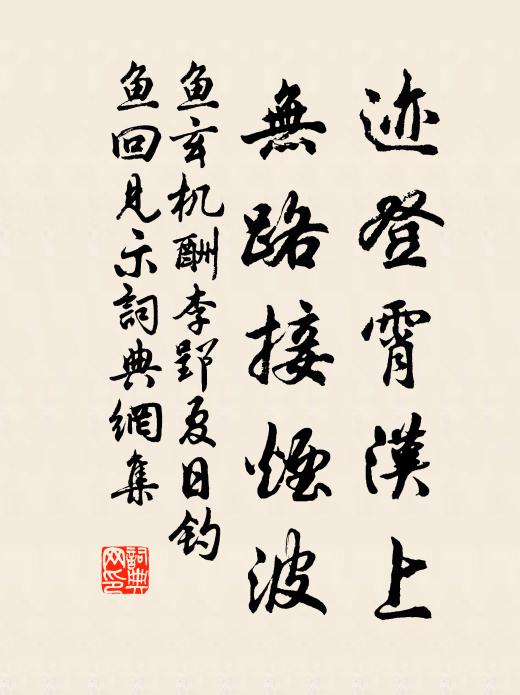 迹登霄漢上
無路接煙波
鱼玄机酬李郢夏日钓
鱼回見示詞典網集
詞典网印